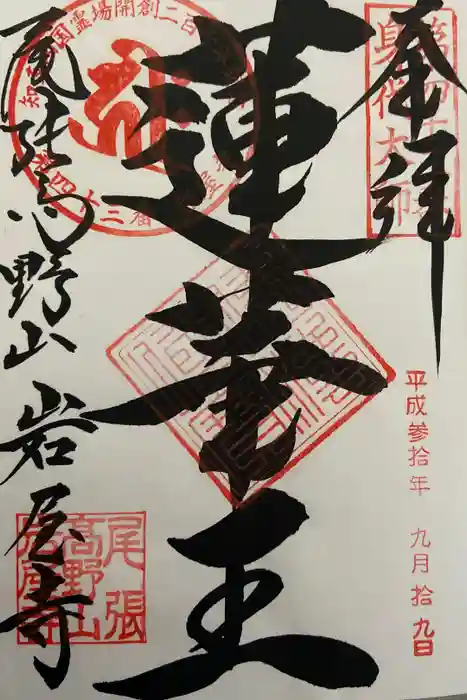 奉拝
第四十三番
身代大師
平成参拾年 九月拾九日
蓮華王
尾張高野山岩屋寺
尾張
高野山
岩屋寺